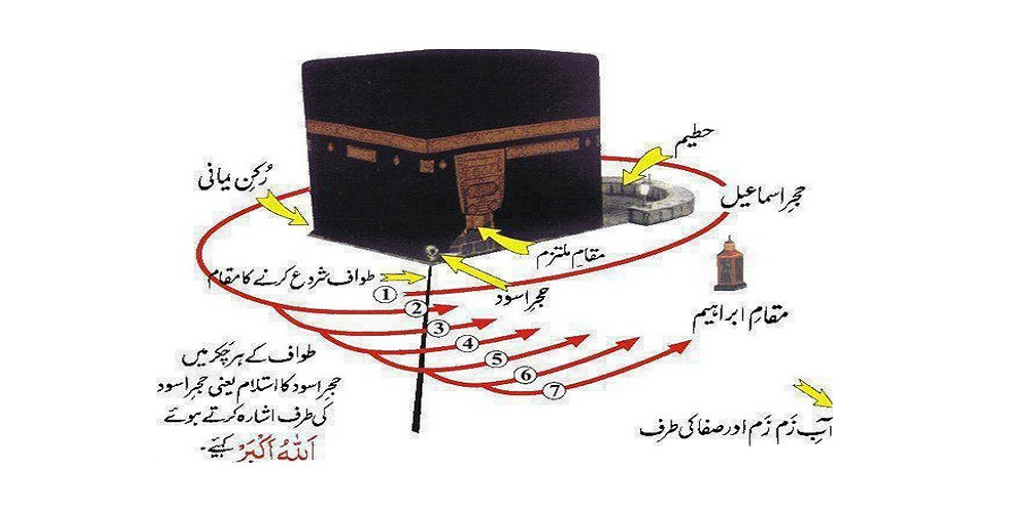 حطیم
رُکنِ یمانی
حجرِ اسماعیل
مقامِ ملتزم
طواف شروع کرنے کا مقام
حجرِ اسود
مقامِ ابراہیم
1
2
3
4
5
6
7
طواف کے ہر چکر میں
حجرِ اسود کا استلام یعنی حجرِ اسود
کی طرف اشارہ کرتے ہوئے
اَللهُ اَکْبَرْ کہیے۔
آبِ زَم زَم اور صفا کی طرف